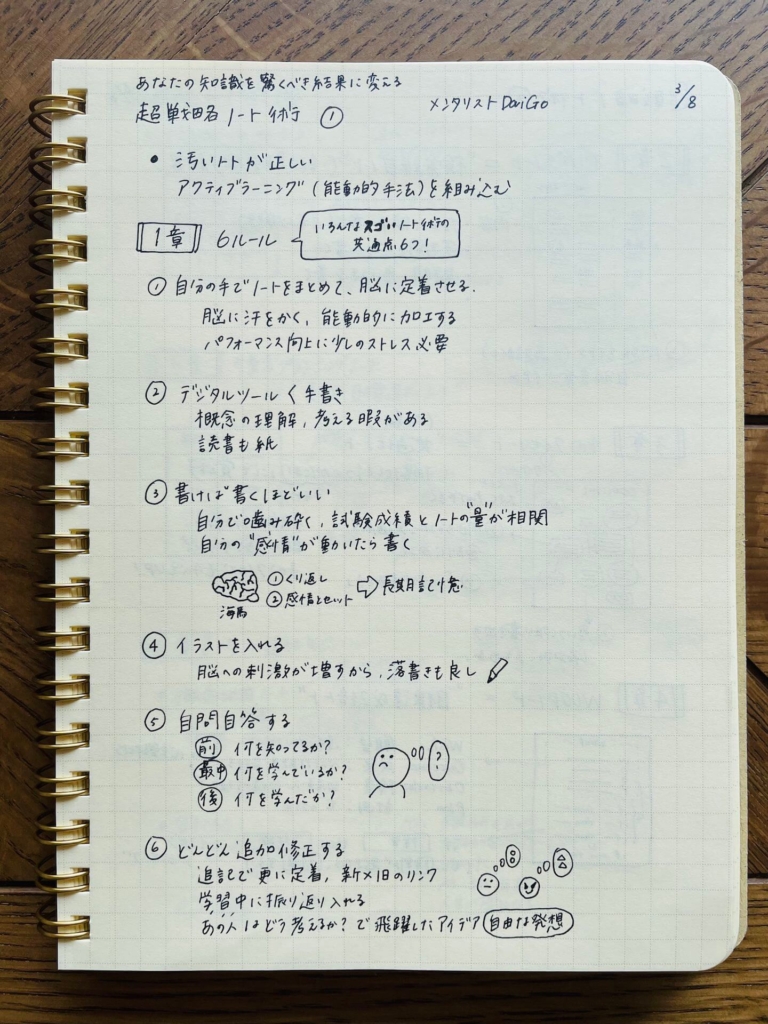 あなたの知識を驚くべき結果に変える
超戦略ノート術 ①
メンタリスト DaiGo
3/8
• 汚いノートが正しい
アクティブラーニング(能動的手法)を組み込む
1章 6ルール
いろんなスゴいノート術の
共通点6つ!
① 自分の手でノートをまとめて、脳に定着させる.
脳に汗をかく, 能動的に加工する
パフォーマンス向上に少しのストレス必要
② デジタルツール < 手書き
概念の理解, 考える暇がある
読書も紙
③ 書けば書くほどいい
自分で噛み砕く, 試験成績とノートの"量"が相関
自分の"感情"が動いたら書く
海馬
①くり返し
②感情とセット
⇨長期記憶
④ イラストを入れる
脳への刺激が増すから, 落書きも良し
⑤ 自問自答する
前 何を知ってるか?
最中 何を学んでいるか?
後 何を学んだか?
?
⑥ どんどん追加修正する
追記で更に定着, 新×旧のリンク
学習中に振り返り入れる
あの人はどう考えるか? で飛躍したアイデア 自由な発想